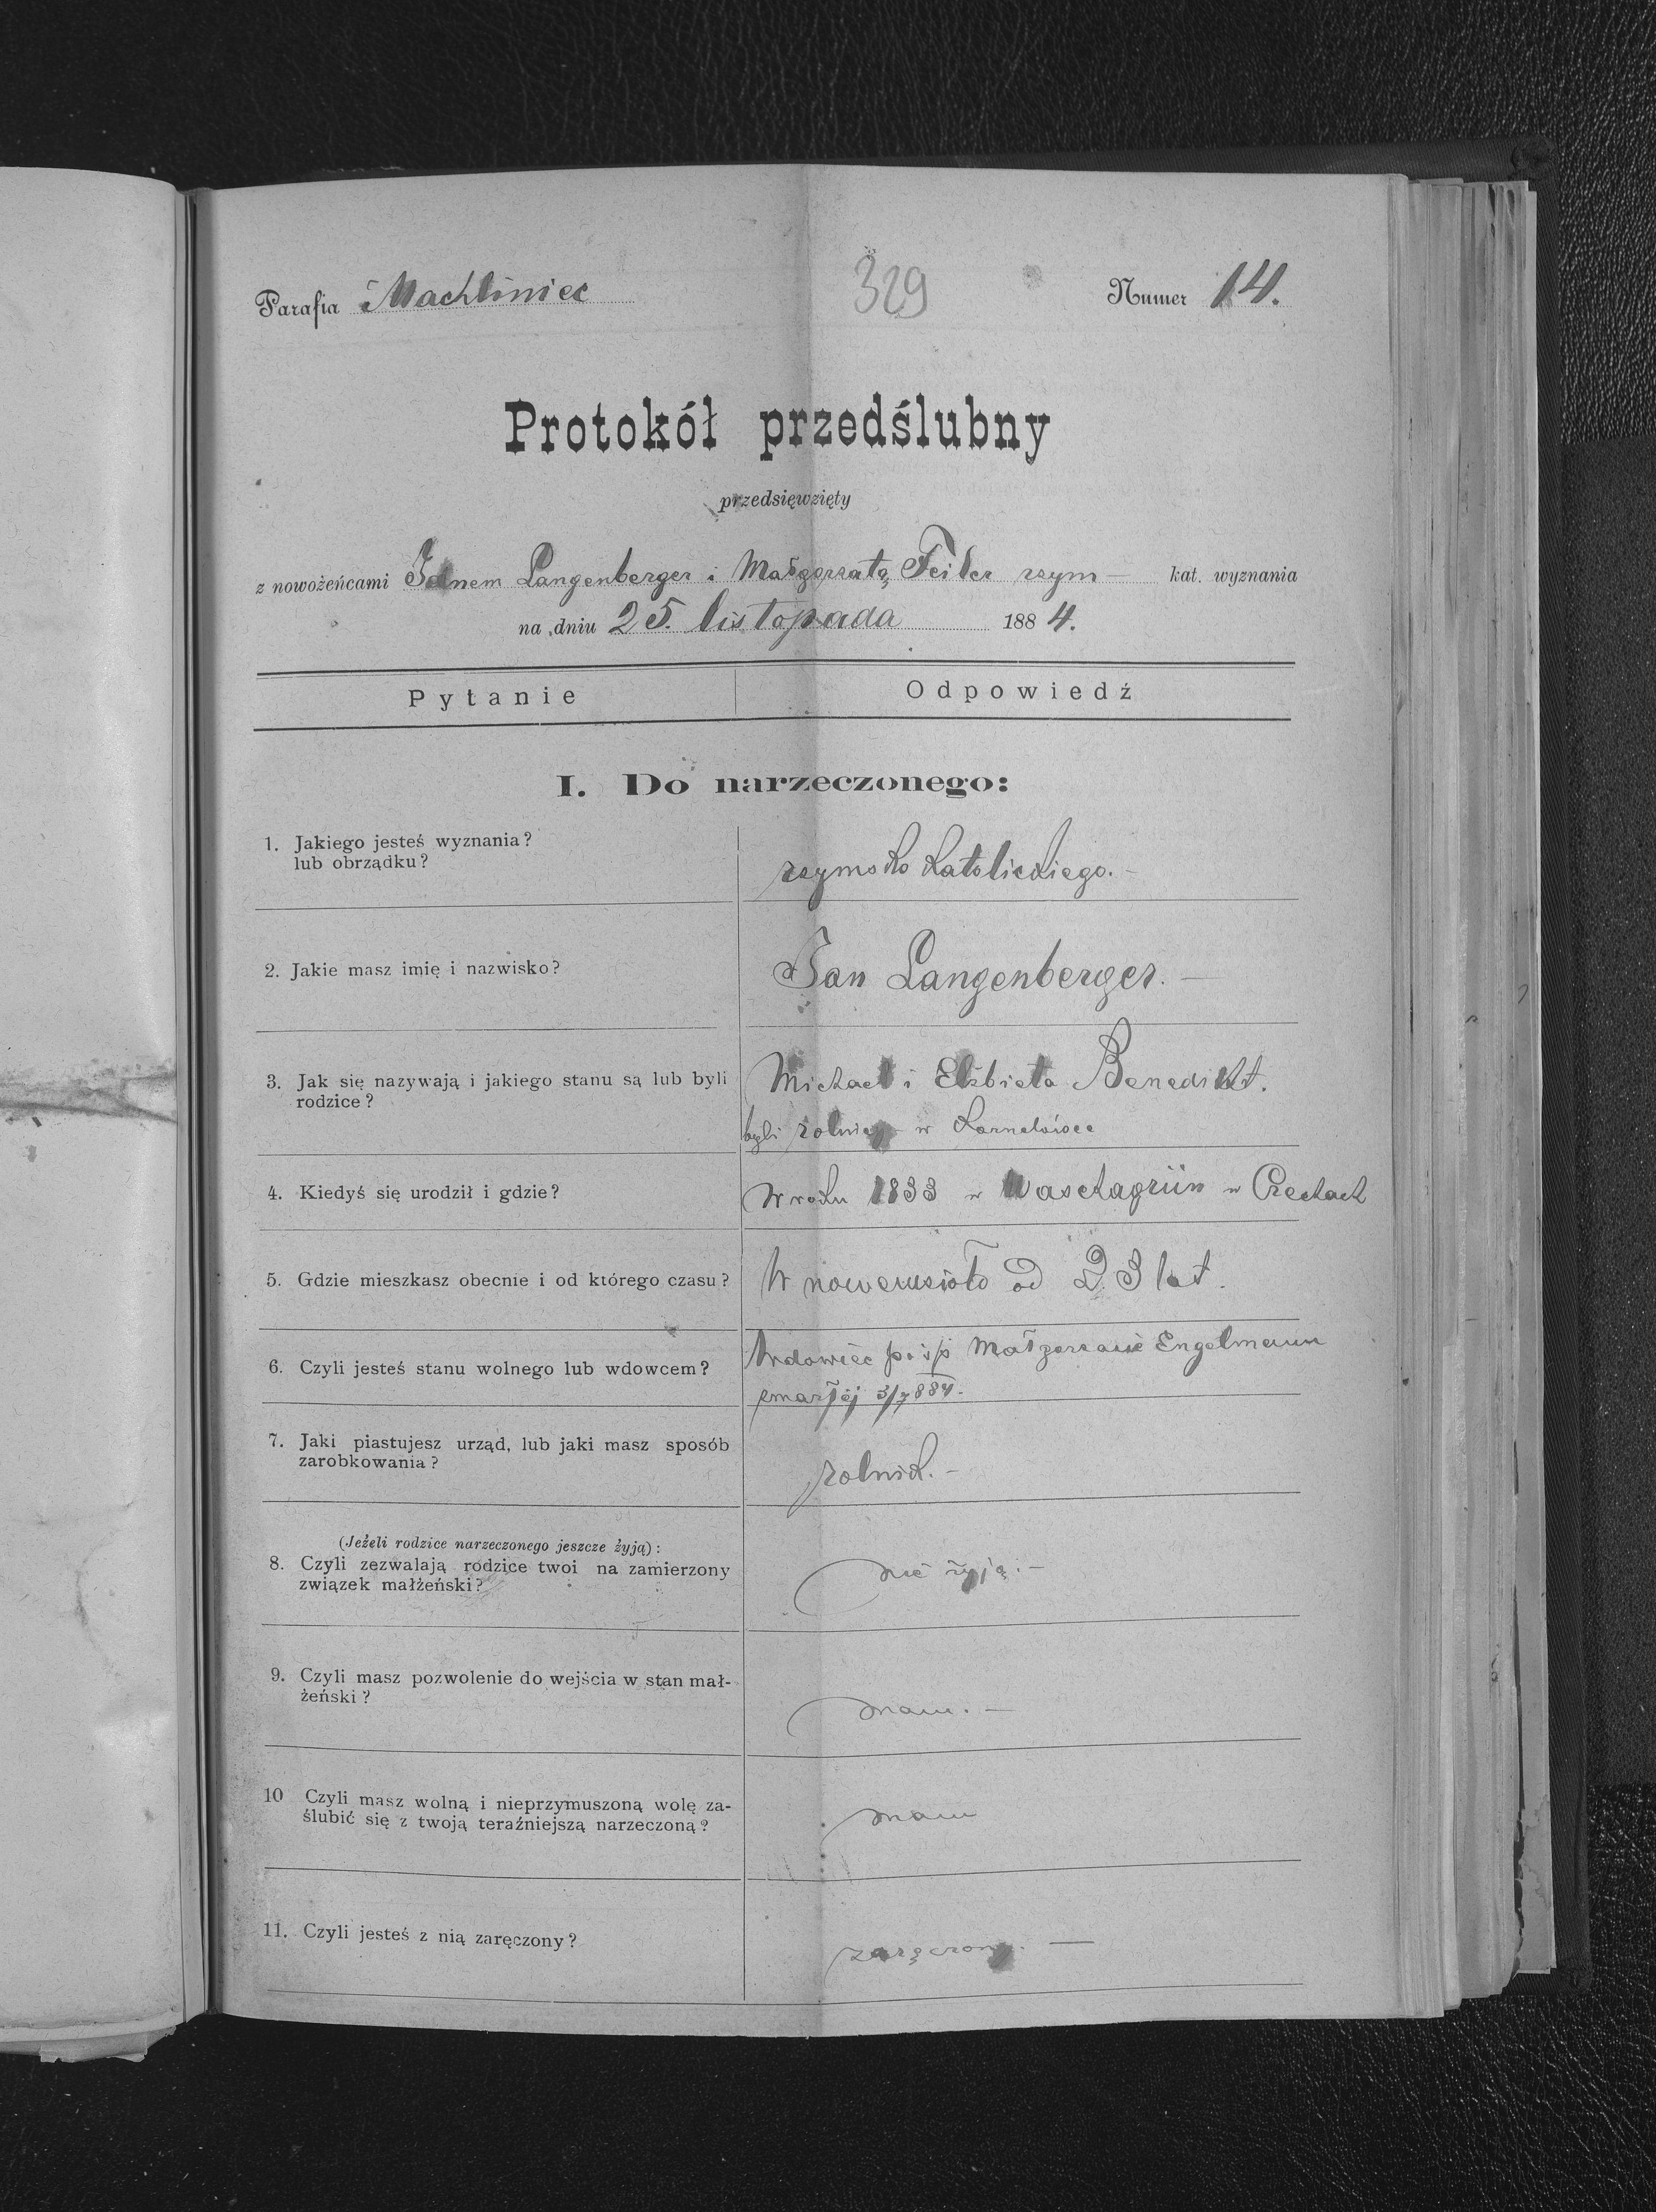 Parafia Machliniec 329 Numer 14.
Protokół przedślubny
przedsięwzięty
z nowożeńcami Janem Langenberger i Małgorzatą Feiler rzym — kat. wyznania
na dniu 25. listopada 1884.
Pytanie Odpowiedź
I. Do narzeczonego:
1. Jakiego jesteś wyznania?
lub obrządku?
rzymsko katolickiego. —
2. Jakie masz imię i nazwisko?
Jan Langenberger. —
3. Jak się nazywają i jakiego stanu są lub byli
rodzice?
Michael i Elżbieta Benedikt.
byli rolnicy w
4. Kiedyś się urodził i gdzie?
W roku 1833 w Waschagrün w Czechach
5. Gdzie mieszkasz obecnie i od którego czasu?
W nowemsioło od 23 lat.
6. Czyli jesteś stanu wolnego lub wdowcem?
Wdowiec po ś/p Małgorzacie Engelmann
zmarłej 3/7 884.
7. Jaki piastujesz urząd, lub jaki masz sposób
zarobkowania?
rolnik. —
(Jeżeli rodzice narzeczonego jeszcze żyją):
8. Czyli zezwalają rodzice twoi na zamierzony
związek małżeński?
nie żyją. —
9. Czyli masz pozwolenie do wejścia w stan mał-
żeński?
mam. —
10 Czyli masz wolną i nieprzymuszoną wolę za-
ślubić się z twoją teraźniejszą narzeczoną?
mam
11. Czyli jesteś z nią zaręczony?
zaręczony. —